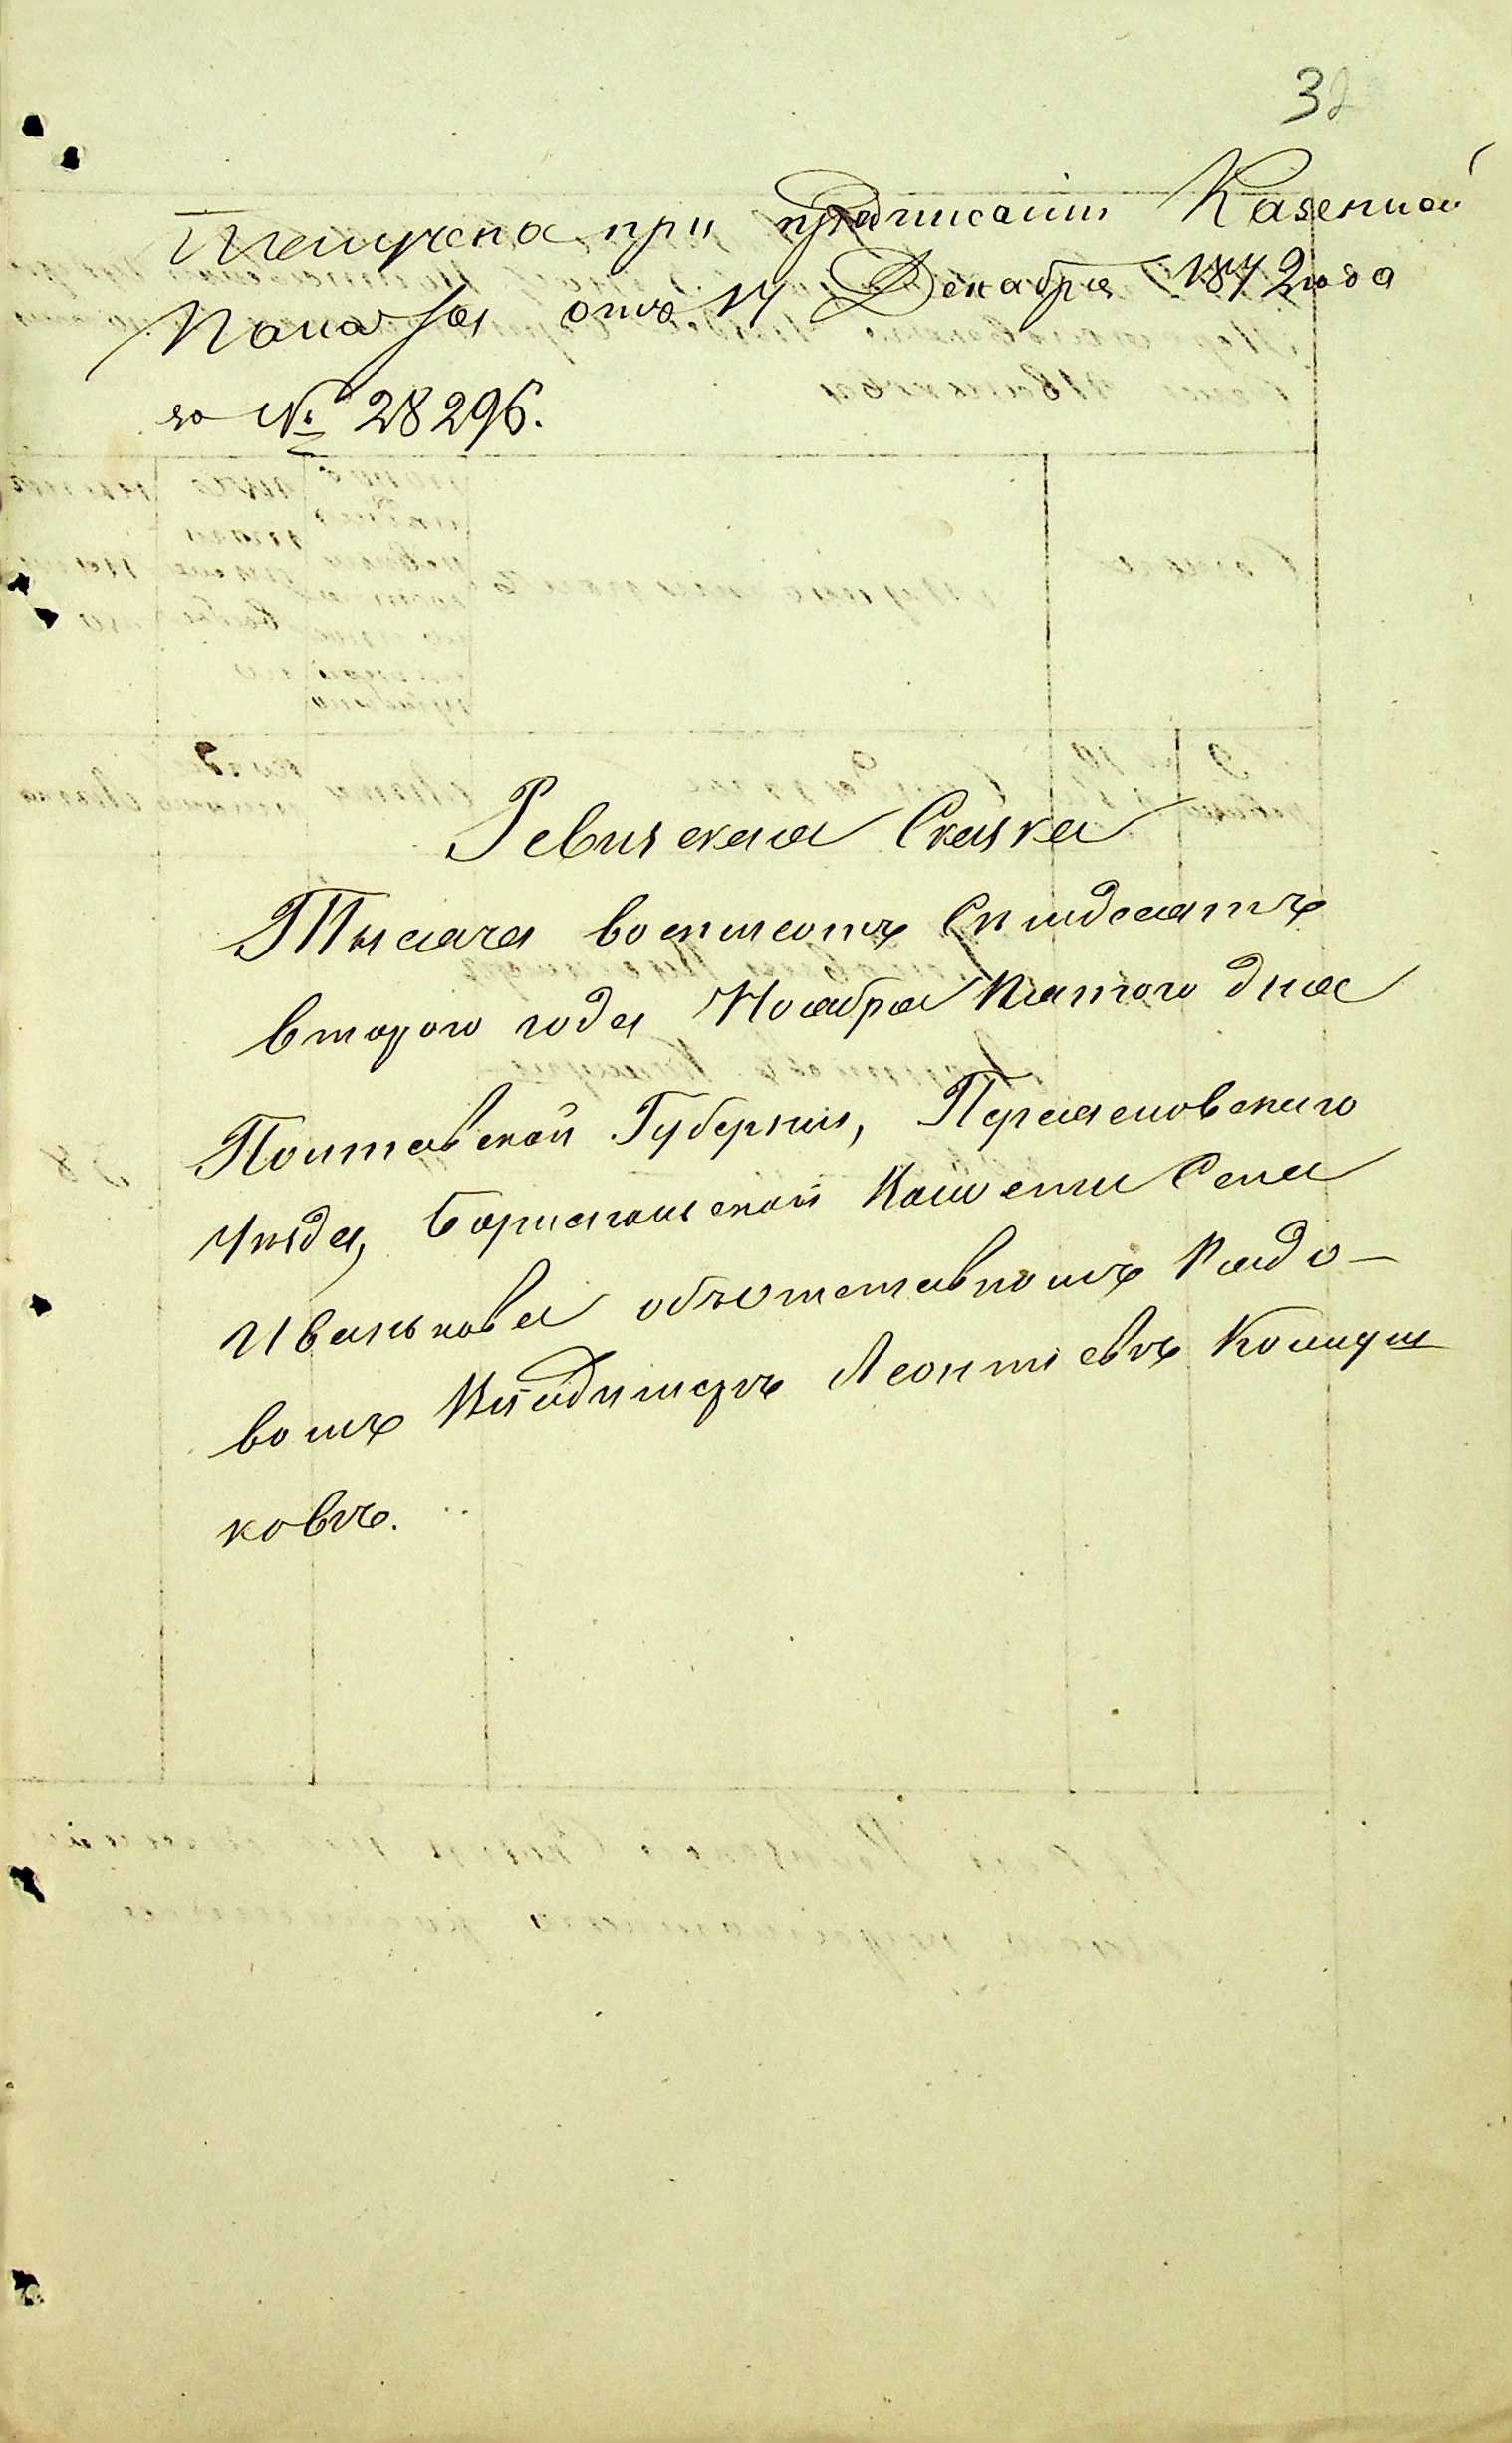 32
Получена при предписании Казенной
Палаты отъ 17 Декабря 1872 года
за № 28296.
Ревизская Сказка
Тысяча восемсотъ Семдесятъ
второго года Ноября Пятого дня
Полтавской Губерніи, Переяславскаго
Уезда, Бориспольской Волости Села
Иванькова объ отставномъ Рядо-
вомъ Владимеръ Леонтіевъ
ковъ.